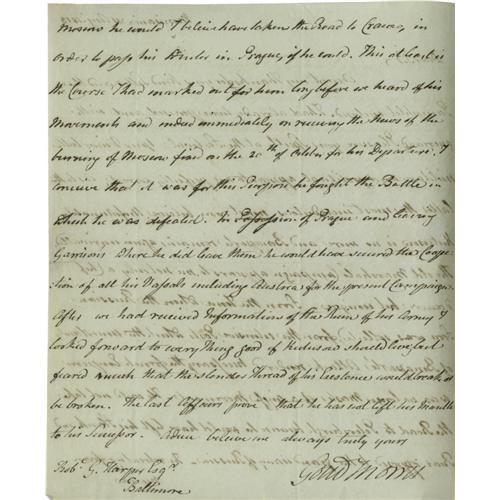 Moscow he would I believe have taken the Road to Cracow, in
order to pass his Winter in Prague, if he could. This at least is
the Course I had marked out for him long before we heard of his
Movements and indeed immediately on receiving the News of the
burning of Moscow fixed on the 20th of October for his Departure. I
conceive that it was for this Purpose he fought the Battle in
which he was defeated. In Possession of Prague and leaving
Garrisons where he did leave them he would have secured the Coope
ration of all his Vassals including Austria for the present Campaign.
After we had received Information of the Ruin of his Army I
looked forward to every Thing good if Kutusow should live, but
feared much that the slender Thread of his Existence would break or
be broken. The last Affairs prove that he has not left his Mantle
to his Successor. Adieu believe me always truly yours
Rob. G. Harper Esqr.
Baltimore
Gouv Morris